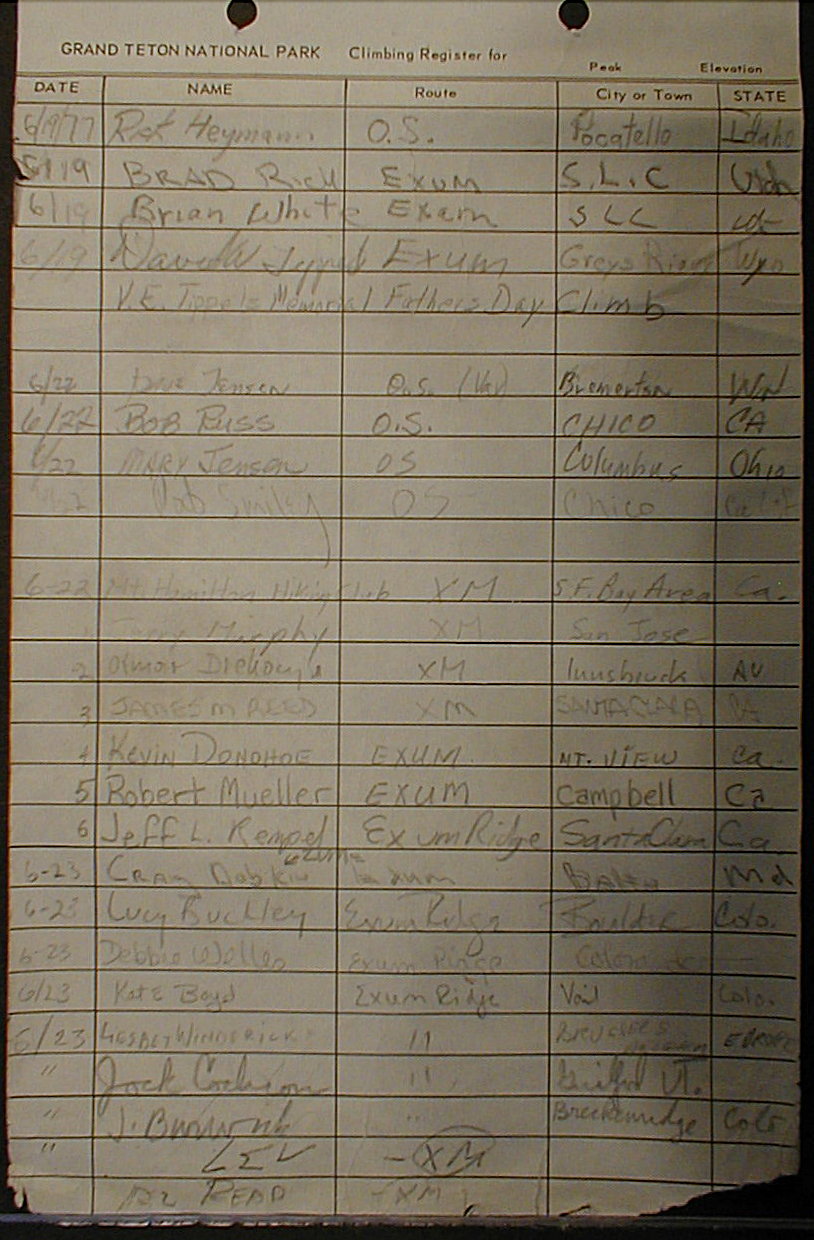 GRAND TETON NATIONAL PARK Climbing Register for
Peak Elevation
DATE NAME Route City or Town STATE
6/19/77 Heymann O.S. Pocatello Idaho
6/19 BRAD Rich EXUM S.L.C Utah
6/19 Brian White Exum SLC Ut
6/19 David W EXUM Greys River Wyo
V.E. Memorial Fathers Day Climb
6/22 Jensen O.S. (Var) Bremerton WN
6/22 BOB RUSS O.S. CHICO CA
6/22 MARY Jensen OS Columbus Ohio
Bob Smiley OS Chico Calif
6-22 Mt. Hamilton Hiking Club XM S.F. Bay Area Ca.
1 Terry Murphy XM San Jose
2 XM Innsbruck AU
3 JAMES M REED XM SANTA CLARA CA
4 KEVIN DONOHOE EXUM. MT. VIEW Ca.
5 Robert Mueller EXUM Campbell Ca
6 Jeff L. Exum Ridge Santa Clara Ca
6-23 Craig Dobkin Exum Balto Md
6-23 Lucy Buckley Exum Ridge Boulder Colo.
6-23 Debbie Exum Ridge
6/23 Kate Boyd Exum Ridge Vail Colo.
6/23 " EUROPE
" Jock " VT.
" J. " Breckenridge Colo
" - XM
READ XM